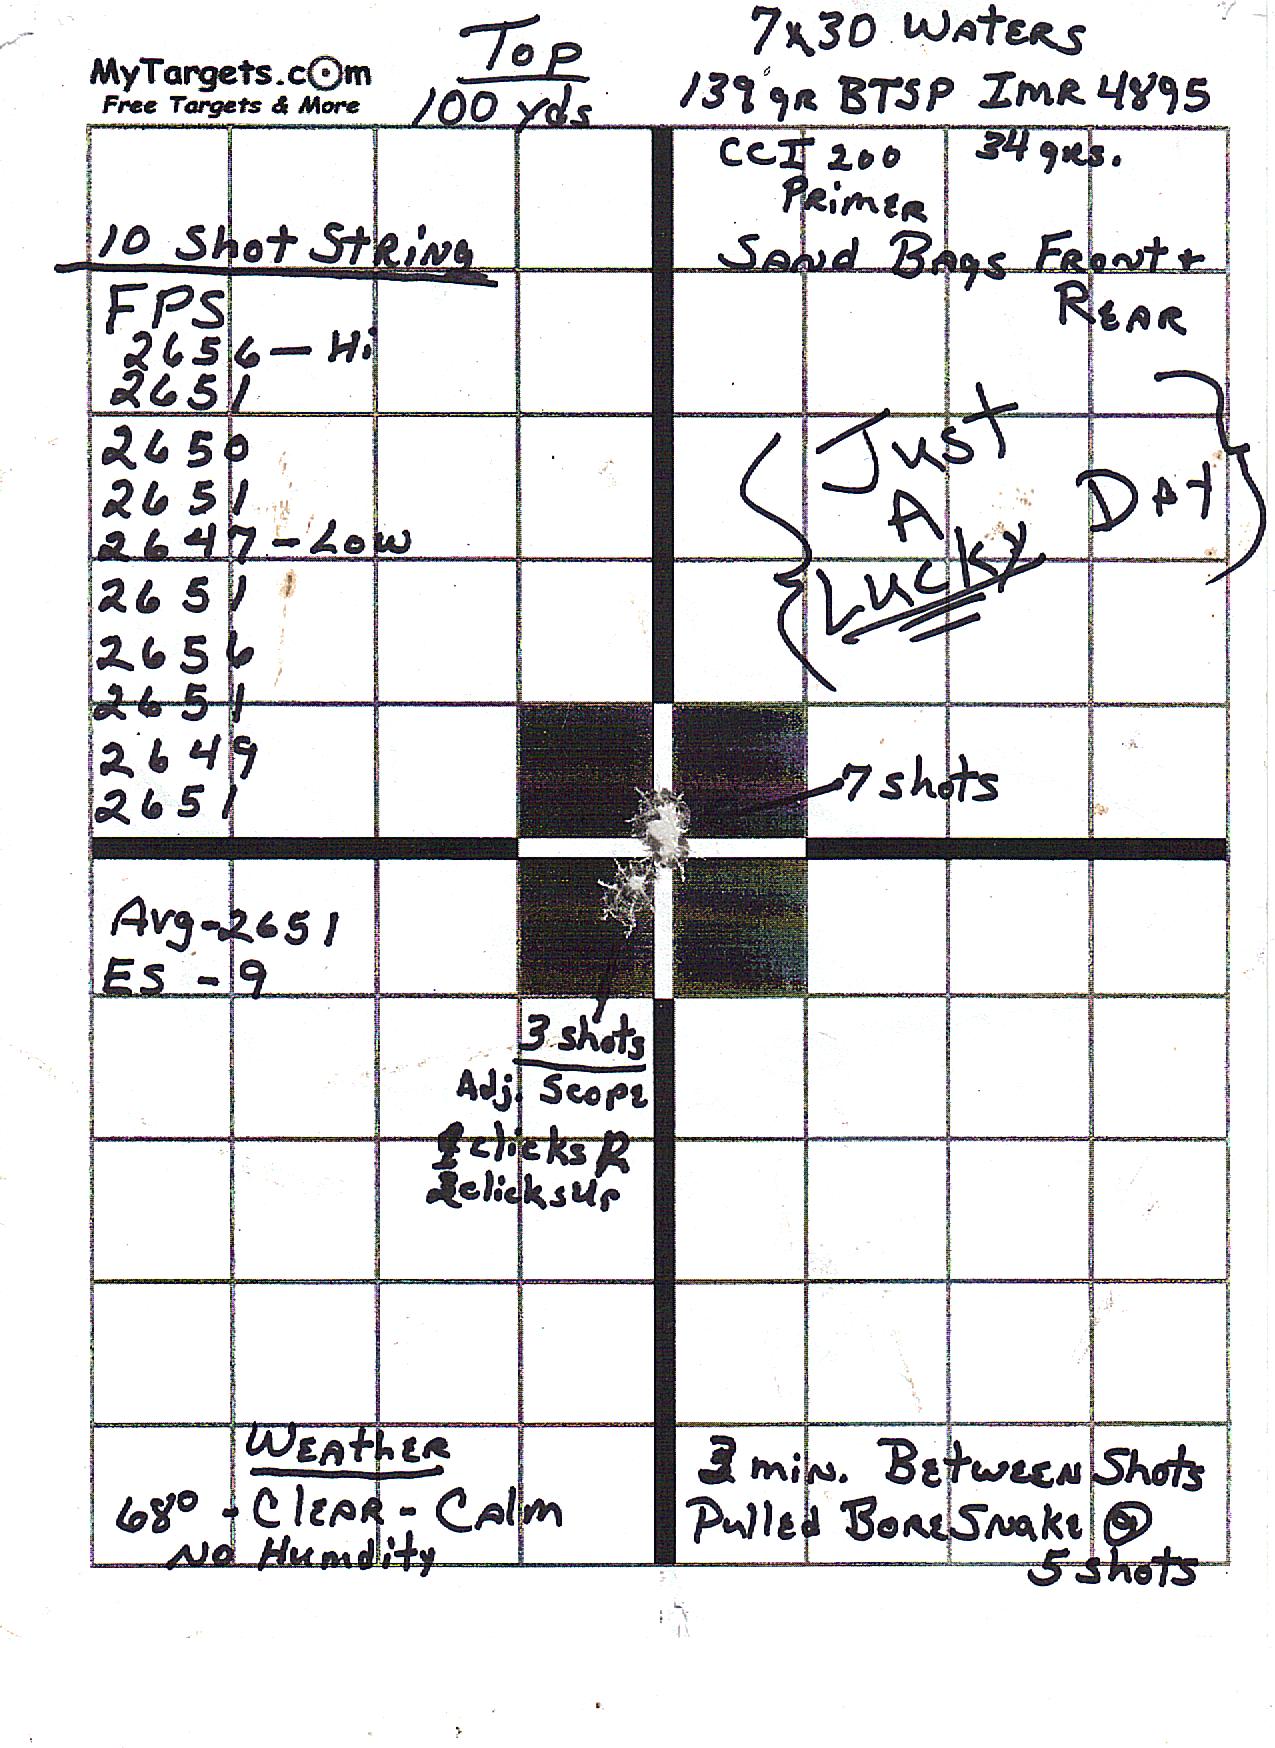 MyTargets.com
Free Targets & More
Top
100 yds
7x30 WATERS
139 gR BTSP IMR 4895
CCI 200 34 grs.
PRiMER
SAND BAgS FRONT +
REAR
10 Shot StRiNg
FPS
2656 - Hi
2651
2650
2651
2647 - Low
2651
2656
2651
2649
2651
Just
A DAY
Lucky
7 shots
Avg - 2651
ES - 9
3 shots
Adj. Scope
clicks R
2 clicks Up
WEAthER
68° - ClEAR - CAlm
No Humdity
3 min. BEtwEEN Shots
Pulled BoreSnake @
5 shots